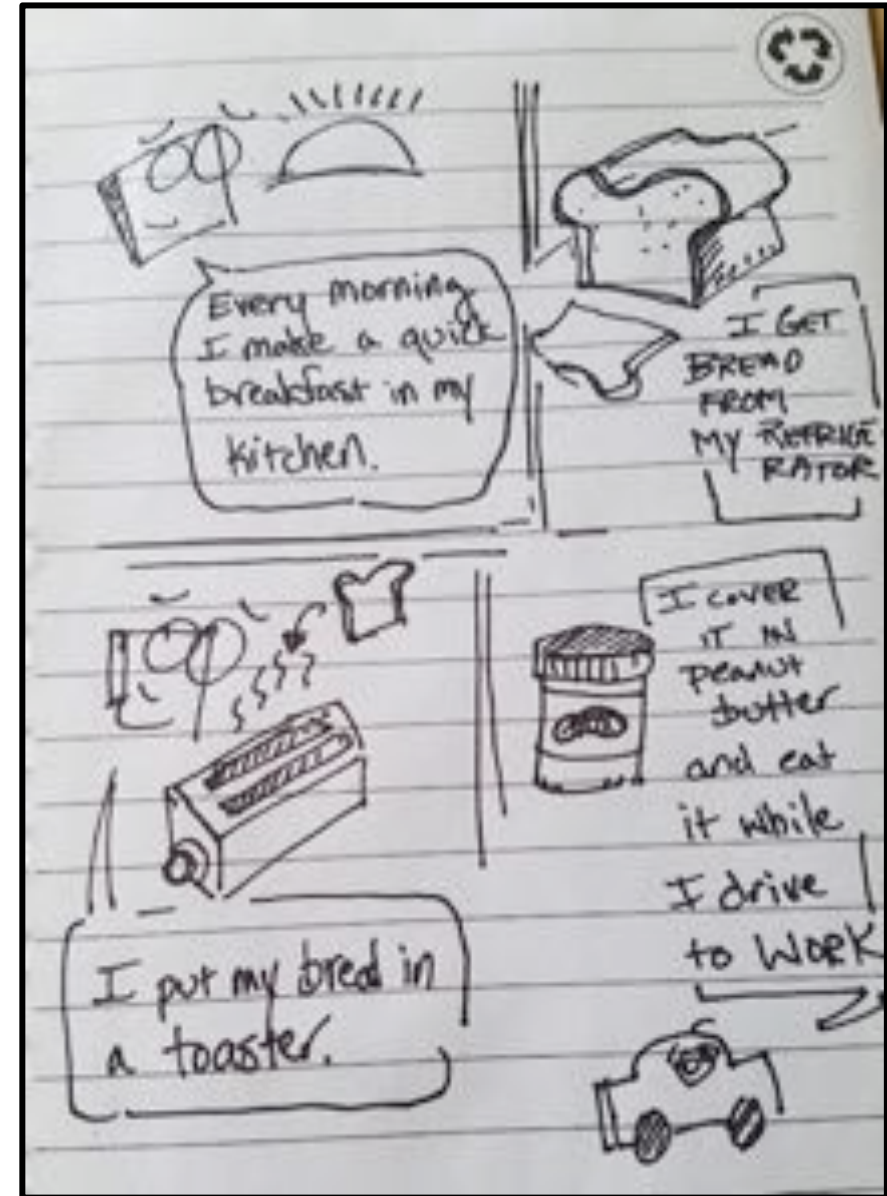 Every morning
I make a quick
breakfast in my
kitchen.
I GET
BREAD
FROM
MY REFRIGE
RATOR
I put my bred in
a toaster.
I COVER
IT IN
Peanut
butter
and eat
it while
I drive
to WORK